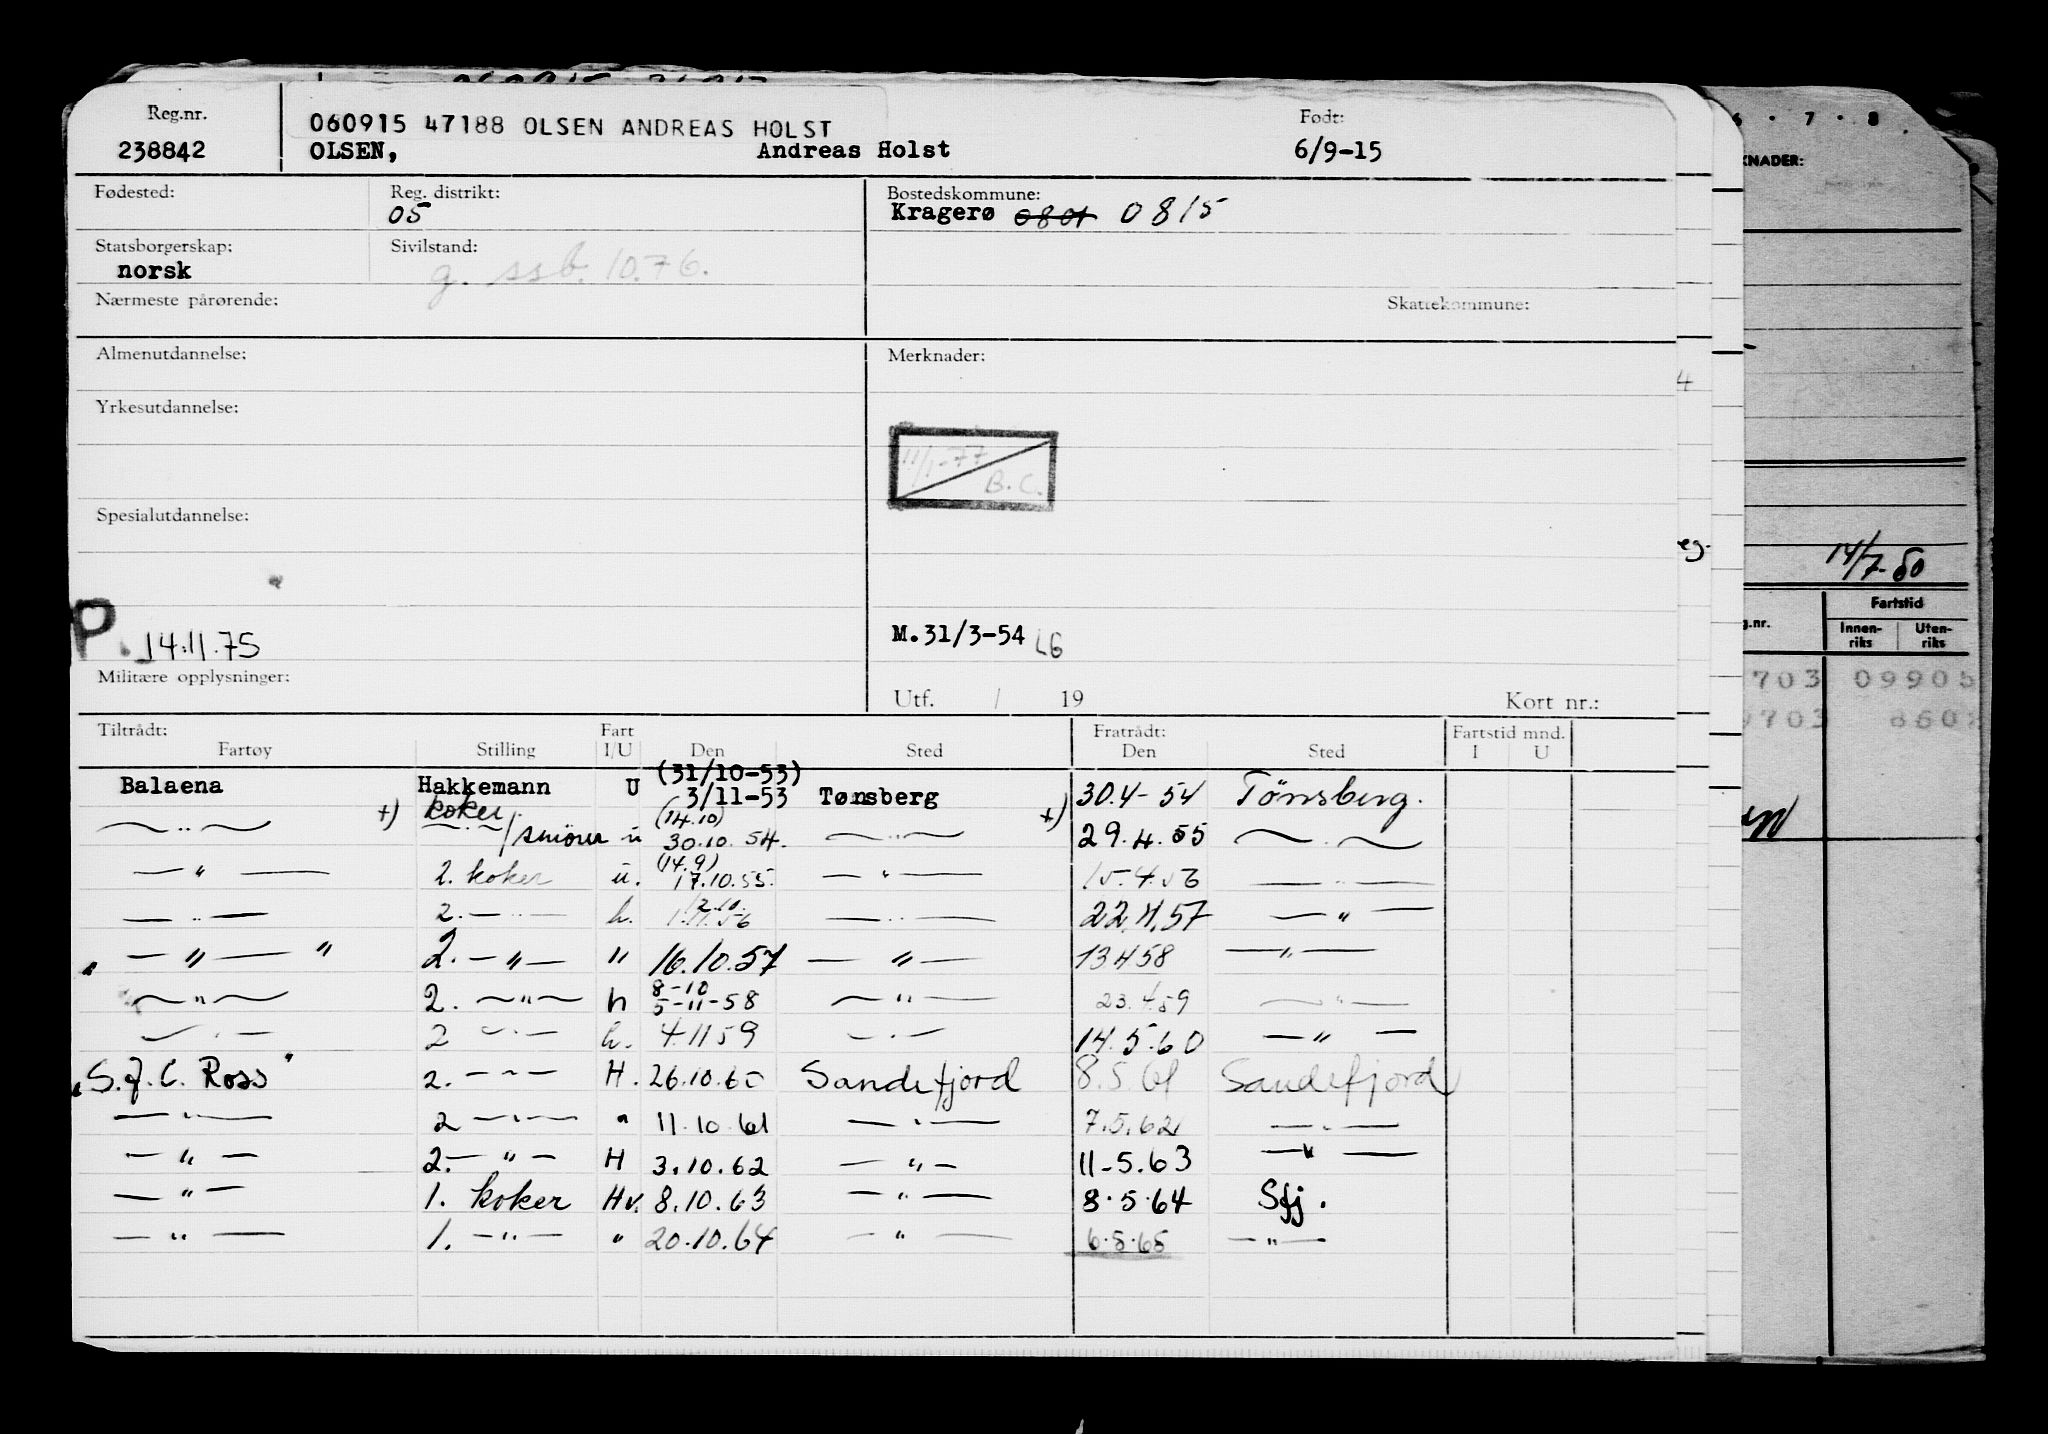 Reg.nr.
238842
060915 47188 OLSEN ANDREAS HOLST
OLSEN, Andreas Holst
Født:
6/9-15
Fødested:
Reg. distrikt:
05
Bostedskommune:
Kragerø 0801 0815
Statsborgerskap:
norsk
Sivilstand:
g. ssb. 10.76.
Nærmeste pårørende:
Skattekommune:
Almenutdannelse:
Merknader:
Yrkesutdannelse:
11/1-77
B.C.
Spesialutdannelse:
P. 14.11.75
M.31/3-54 LG
Militære opplysninger:
Utf. / 19
Kort nr.:
Tiltrådt:
Fartøy Stilling Fart I/U Den Sted
Fratrådt:
Den Sted
Fartstid mnd.
I U
Balaena Hakkemann U (31/10-53) 3/11-53 Tønsberg 30.4-54 Tønsberg.
+) koker
— " — — " —/smører u (14.10) 30.10.54. — " — +) 29.4.55 — " —
— " — 2. koker u. (14.9) 17.10.55. — " — 15.4.56 — " —
— " — 2. — " — h. 12.10. 1.11.56 — " — 22.4.57 — " —
" — " — " 2. — " — " 16.10.57 — " — 13 4 58 — " —
— " — 2. — " — h 8-10 5-11-58 — " — 23.4.59 — " —
— " — 2 — " — h. 4.11 59 — " — 14.5.60 — " —
"S.J.C. Ross" 2. — " — H. 26.10.60 Sandefjord 8.5.61 Sandefjord
— " — 2 — " — " 11.10.61 — " — 7.5.62 — " —
— " — 2. — " — H 3.10.62 — " — 11-5.63 — " —
— " — 1. koker Hv. 8.10.63 — " — 8.5.64 Sfj.
— " — 1. — " — " 20.10.64 — " — 6.5.65 — " —
6 . 7 . 8 .
KNADER:
4
eg.
14/7-80
g.nr.
Fartstid
Innen-
riks
Uten-
riks
703 09905
703 8602